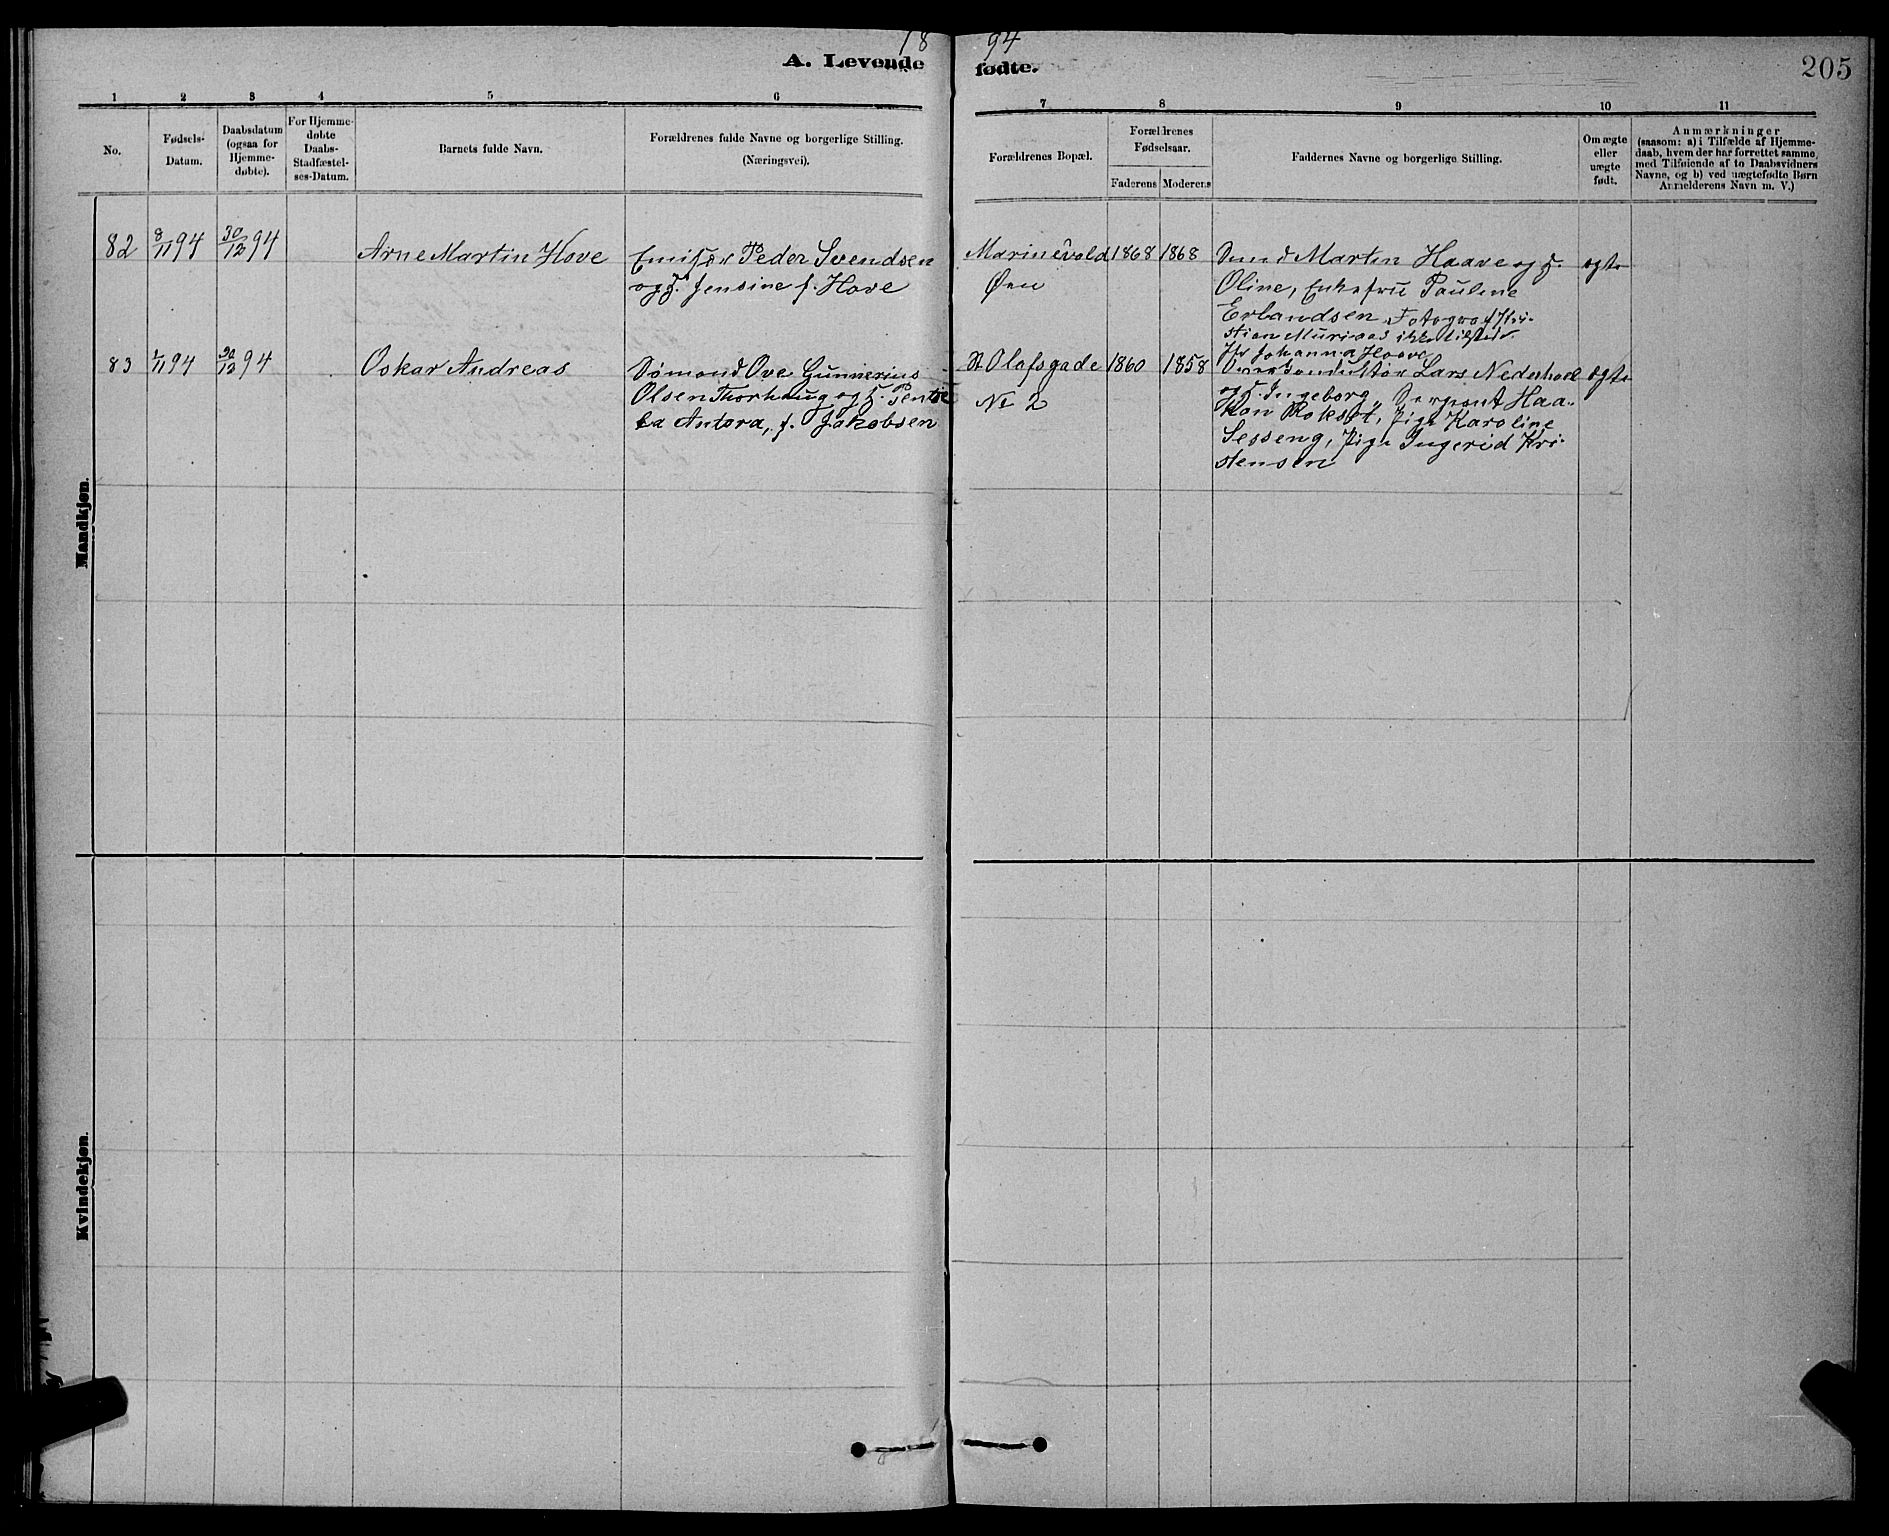 18 94
A. Levende fødte.
205
1 2 3 4 5 6 7 8 9 10 11
No.
Fødsels-
Datum.
Daabsdatum
(ogsaa for
Hjemme-
døbte).
For Hjemme-
døbte
Daabs-
Stadfæstel-
ses-Datum.
Barnets fulde Navn.
Forældrenes fulde Navne og borgerlige Stilling.
(Næringsvei).
Forældrenes Bopæl.
Forældrenes
Fødselsaar.
Faderens Moderens
Faddernes Navne og borgerlige Stilling.
Om ægte
eller
uægte
født.
Anmærkninger
(saasom: a) i Tilfælde af Hjemme-
daab, hvem der har forrettet samme,
med Tilføiende af to Daabsvidners
Navne, og b) ved uægtefødte Børn
Anmelderens Navn m. V.)
Mandkjøn.
82 8/11 94 30/12 94 Arne Martin Hove
Emissær Peder Svendsen
og H. Jensine f. Hove
Marinevold
Øen
1868 1868
Martin Haave og H.
Oline, Enkefru Pauline
Erlandsen, Fotograf Kri-
stian ikke tilstede
Johanna Haave
ægte
83 1/11 94 30/12 94 Oskar Andreas
Sømand Ove Gunnerius
Olsen Thorhaug og H.
Antora, f. Jakobsen
St Olafsgade
No 2
1860 1858
Lars Nederhoel
og H. Ingeborg, Sergeant Haa-
kon Pige Karoline
Sesseng, Pige Ingerid Kri-
stensen
ægte
Kvindekjøn.